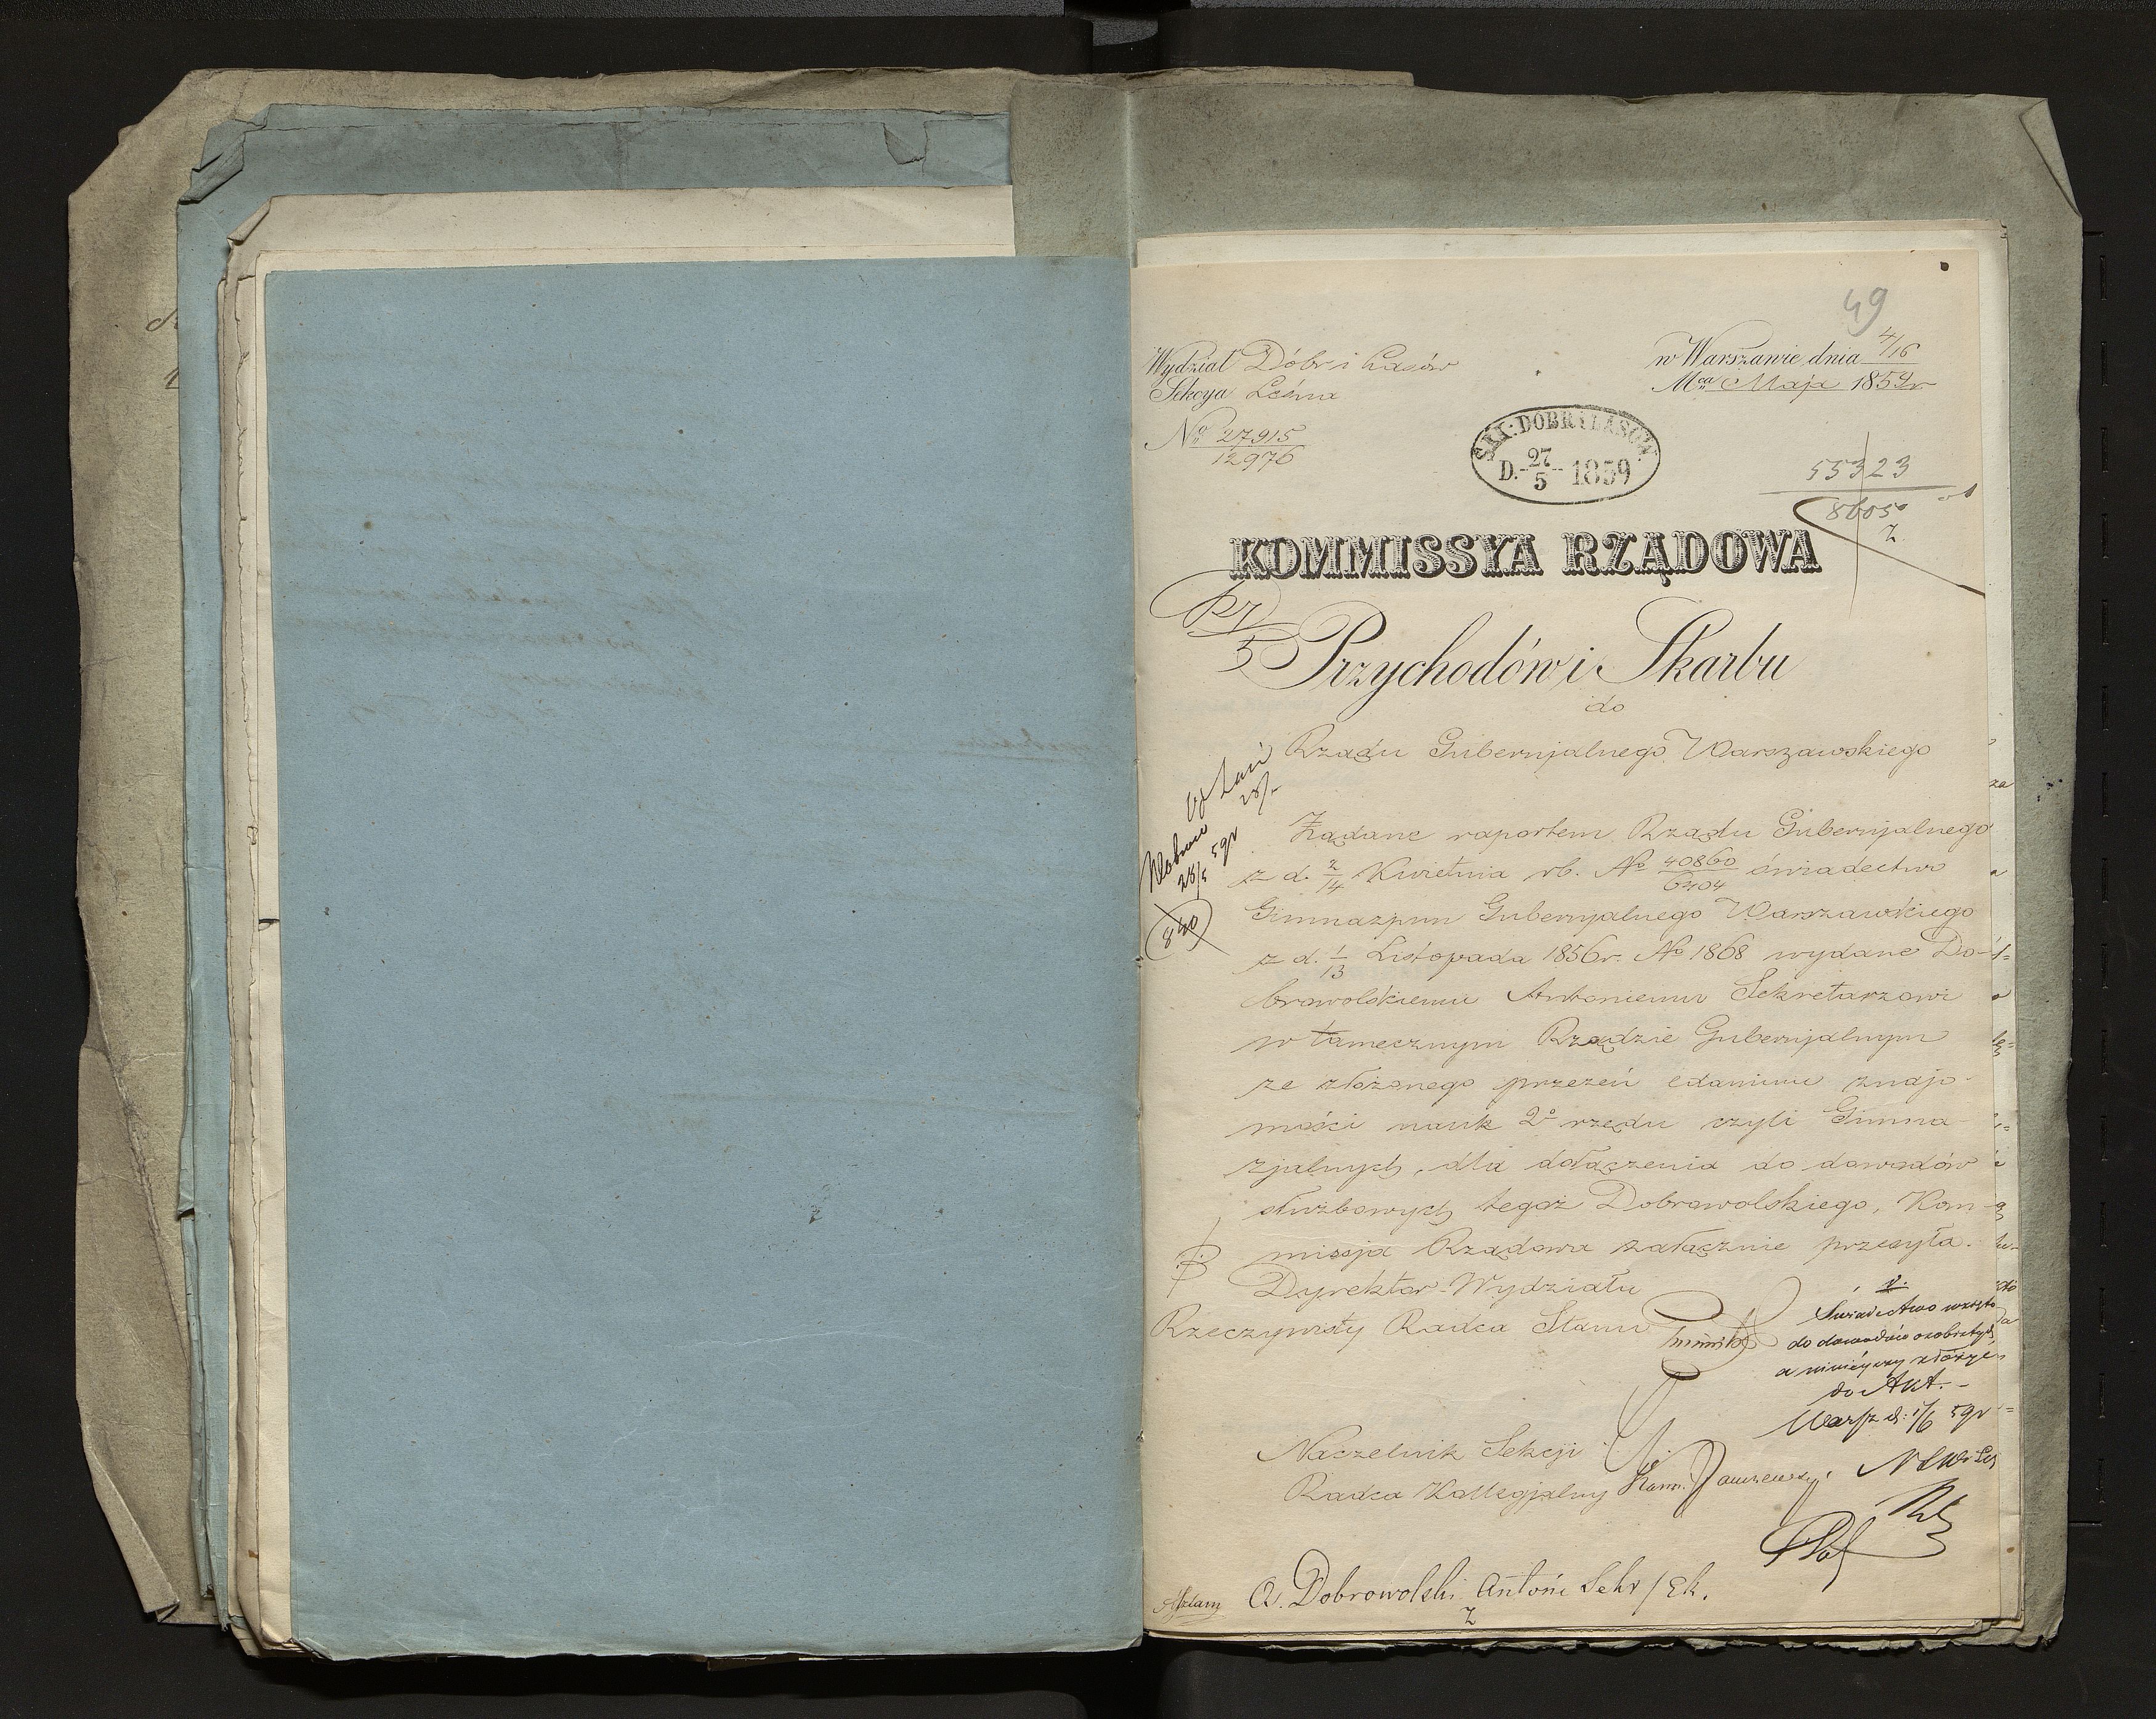 49
Wydział Dóbr i Lasów
Sekcya Leśna
No 27915
12976
w Warszawie dnia 4/16
Mca Maja 1859r
SEK: DOBR I LASÓW.
D. 27/5 1859
55323
8605
Z
KOMMISSYA RZĄDOWA
Przychodów i Skarbu
do
Rządu Gubernjalnego Warszawskiego
28/5 59r
840
Żądane raportem Rządu Gubernjalnego
z d. 2/14 Kwietnia rb. No 40860/6404 świadectwo
Gimnazyum Gubernyalnego Warszawskiego
z d. 1/13 Listopada 1856r. No 1868 wydane Do-
browolskiemu Antoniemu Sekretarzowi
w tamecznym Rządzie Gubernjalnym
ze złożonego przezeń edaminu znajo-
mości nauk 2o rzędu czyli Gimna-
zjalnych, dla dołączenia do dowodów
służbowych tegoż Dobrowolskiego, Kom-
missja Rządowa załącznie przesyła.
Dyrektor Wydziału
Rzeczywisty Radca Stanu
Świadectwo wzięto
do dowodów osobistych,
a niniéyszy złożyć
do Akt. -
Warsz d: 1/6 59r
Naczelnik Sekcji
Radca Kollegjalny
A. Dobrowolski Antoni Sekr / Ek.
Z